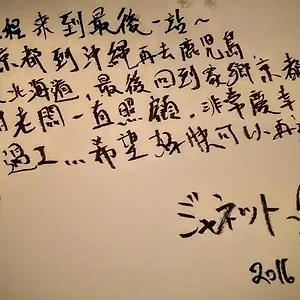 程來到最後一站~
京都到沖繩再去鹿児島
北海道,最後回到家鄉京都
老闆一直照顧,非常慶幸
過工...希望 快可以再
ジャネット
2016